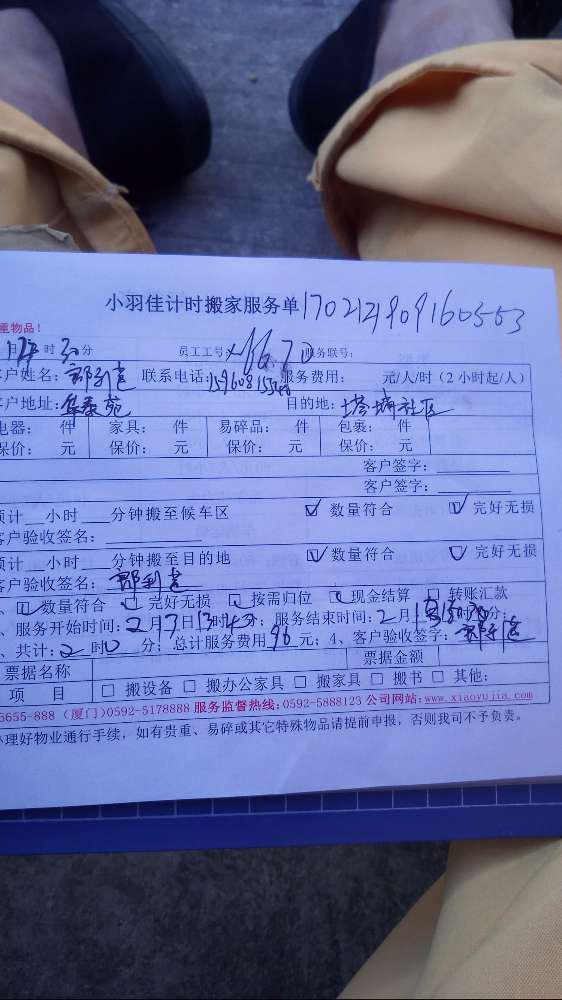 小羽佳计时搬家服务单 1702121909160553
重物品！
月 17 时 30 分 员工工号: 6670 服务联号:
客户姓名: 联系电话: 服务费用: 元/人/时（2小时起/人）
客户地址: 华泰苑 目的地: 塔埔社区
电器: 件 家具: 件 易碎品: 件 包裹: 件
保价: 元 保价: 元 保价: 元 保价: 元
客户签字:
客户签字:
预计__小时___分钟搬至候车区 ☑ 数量符合 ☑ 完好无损
客户验收签名:
预计__小时___分钟搬至目的地 ☑ 数量符合 ☑ 完好无损
客户验收签名:
、☑ 数量符合 ☑ 完好无损 ☑ 按需归位 ☑ 现金结算 □ 转账汇款
、服务开始时间: 2月 日13时43分; 服务结束时间: 2月
、共计: 2时0分; 总计服务费用 96 元; 4、客户验收签字:
票据名称 票据金额
项 目 □ 搬设备 □ 搬办公家具 □ 搬家具 □ 搬书 □ 其他:
5655-888 (厦门)0592-5178888 服务监督热线:0592-5888123 公司网站:www.xiaoyujia.com
办理好物业通行手续，如有贵重、易碎或其它特殊物品请提前申报，否则我司不予负责。